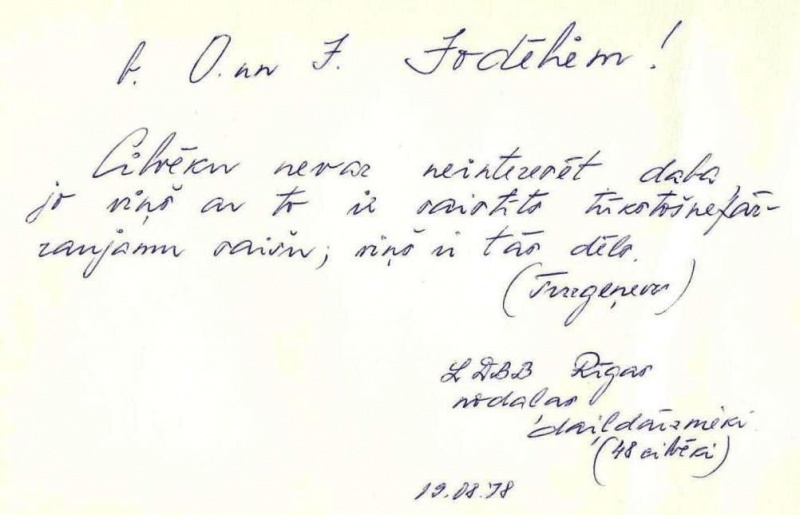 b. O. un J. Jodēhēm!
Cilvēku nevar neinteresēt daba,
jo viņš ar to ir saistīts tūkstoš nepār-
raujamu saišu; viņš ir tās dēls.
(Turgeņevs)
LDBB Rīgas
nodaļas
daiļdārznieki
(48 cilvēki)
19.08.78